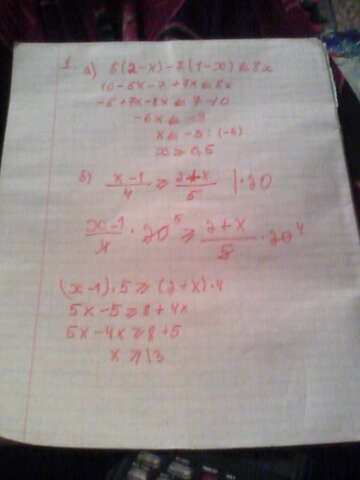 1. а) 5(2-x)-7(1-x)≤8x
10-5x-7+7x≤8x
-5+7x-8x≤7-10
-6x≤-3
x≤-3:(-6)
x≥0,5
б) x-1/4 ≥ 2+x/5 |·20
x-1/4 · 20⁵ ≥ 2+x/5 · 20⁴
(x-1)·5≥(2+x)·4
5x-5≥8+4x
5x-4x≥8+5
x≥13